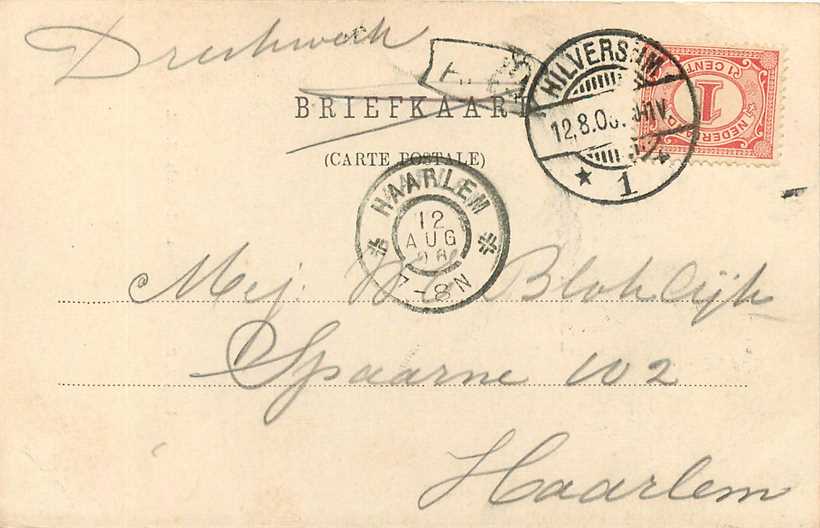 Drukwerk
BRIEFKAART
(CARTE POSTALE)
HILVERSUM
12.8.06.
1
NEDERLAND
1
1 CENT
HAARLEM
12
AUG
06
7-8N
Mej. Bloklijk
Spaarne 102
Haarlem